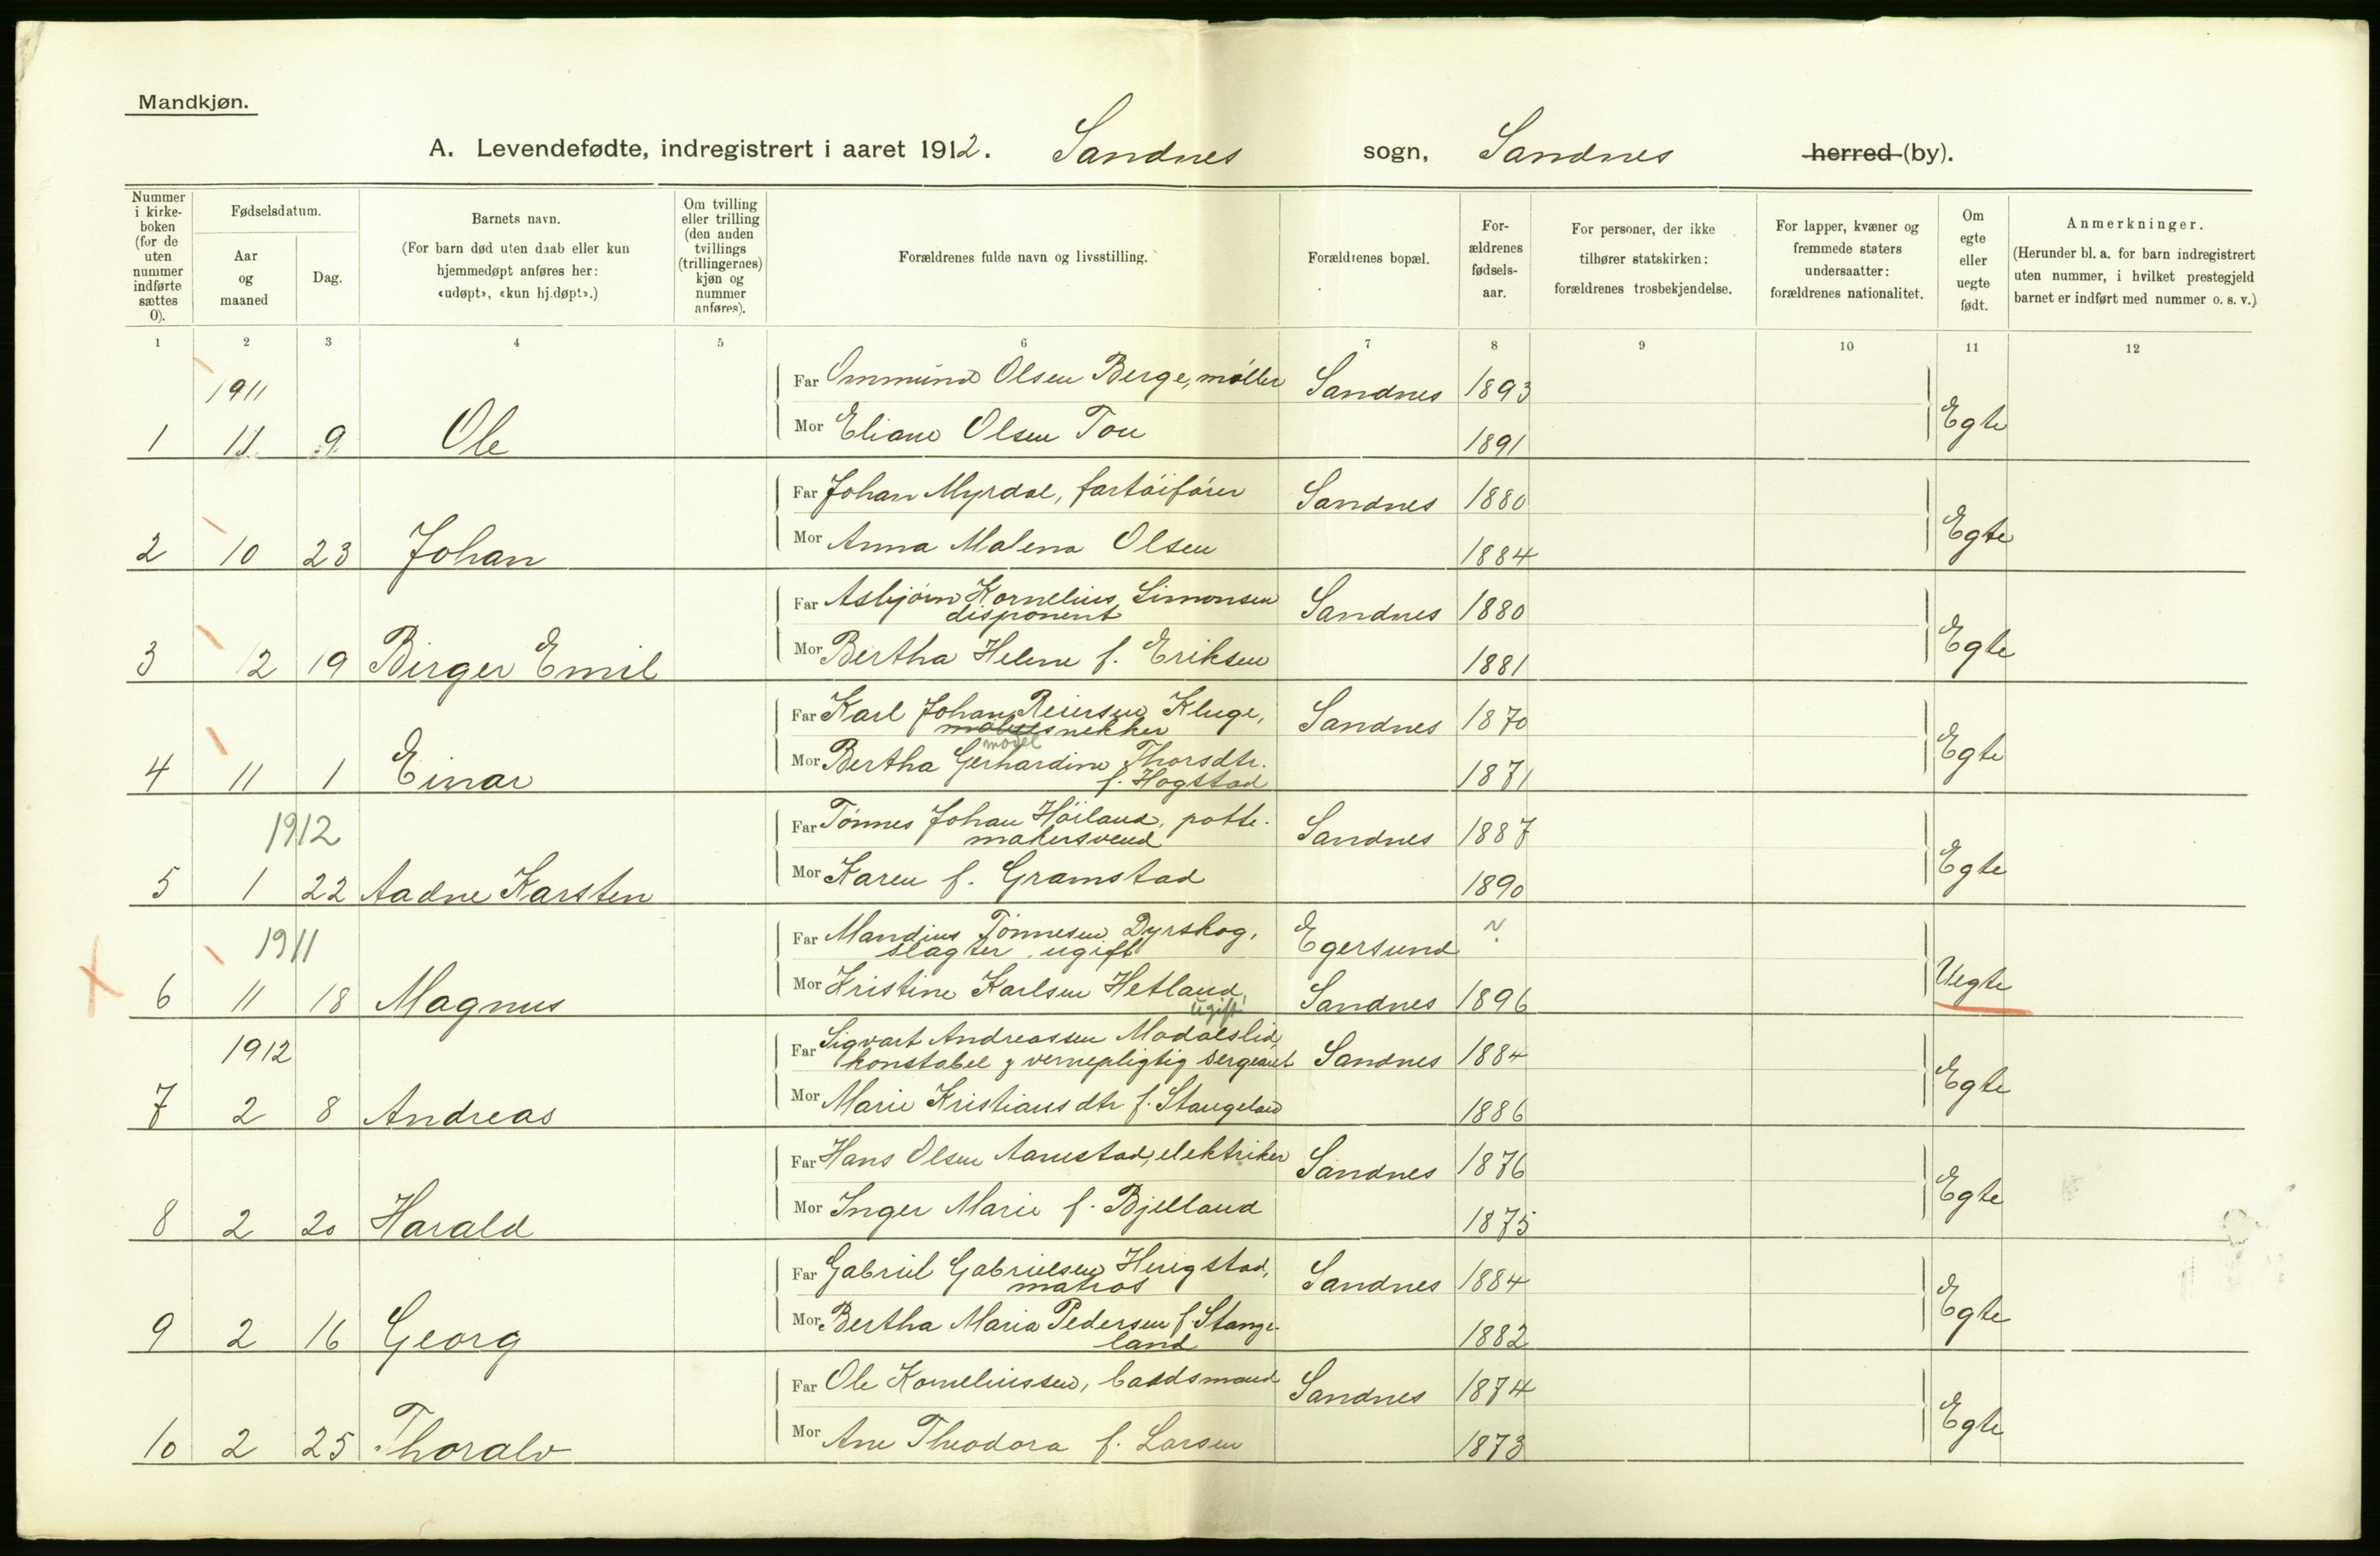 Mandkjøn.
A. Levendefødte, indregistrert i aaret 1912. Sandnes sogn, Sandnes herred (by).
Nummer i kirke-boken (for de uten nummer indførte sættes 0).
Fødselsdatum.
Aar og maaned
Dag.
Barnets navn.
(For barn død uten daab eller kun hjemmedøpt anføres her: «udøpt», «kun hj.døpt».)
Om tvilling eller trilling (den anden tvillings (trillingernes) kjøn og nummer anføres).
Forældrenes fulde navn og livsstilling.
Forældrenes bopæl.
For-ældrenes fødsels-aar.
For personer, der ikke tilhører statskirken: forældrenes trosbekjendelse.
For lapper, kvæner og fremmede staters undersaatter: forældrenes nationalitet.
Om egte eller uegte født.
Anmerkninger.
(Herunder bl. a. for barn indregistrert uten nummer, i hvilket prestegjeld barnet er indført med nummer o. s. v.)
1 2 3 4 5 6 7 8 9 10 11 12
1911
Far Ommund Olsen Berge, møller Sandnes 1893
1 11 9 Ole Mor Eliane Olsen Tou 1891 Egte
Far Johan Myrdal, fartøifører Sandnes 1880
2 10 23 Johan Mor Anna Malena Olsen 1884 Egte
Far Asbjørn Kornelius Simonsen Sandnes 1880
disponent
3 12 19 Birger Emil Mor Bertha Helene f. Eriksen 1881 Egte
Far Karl Johan Reiersen Kluge, Sandnes 1870
møbelsnekker
model
4 11 1 Einar Mor Bertha Gerhardine Thorsdtr. 1871 Egte
f. Hogstad
1912
Far Tönnes Johan Höiland, potte- Sandnes 1887
makersvend
5 1 22 Aadne Karsten Mor Karen f. Gramstad 1890 Egte
1911
Far Mandius Tönnesen Dyrskog, Egersund ?
slagter, ugift
6 11 18 Magnus Mor Kristine Karlsen Hetland, Sandnes 1896 Uegte
ugift
1912
Far Sigvart Andreassen Madalslid, Sandnes 1884
konstabel & vernepligtig sergeant
7 2 8 Andreas Mor Marie Kristiansdtr f. Stangeland 1886 Egte
Far Hans Olsen Aarrestad, elektriker Sandnes 1876
8 2 20 Harald Mor Inger Marie f. Bjelland 1875 Egte
Far Gabriel Gabrielsen Herigstad, Sandnes 1884
matros
9 2 16 Georg Mor Bertha Maria Pedersen f. Stange- 1882 Egte
land
Far Ole Korneliussen, baadsmand Sandnes 1874
10 2 25 Thoralv Mor Ane Theodora f. Larsen 1873 Egte